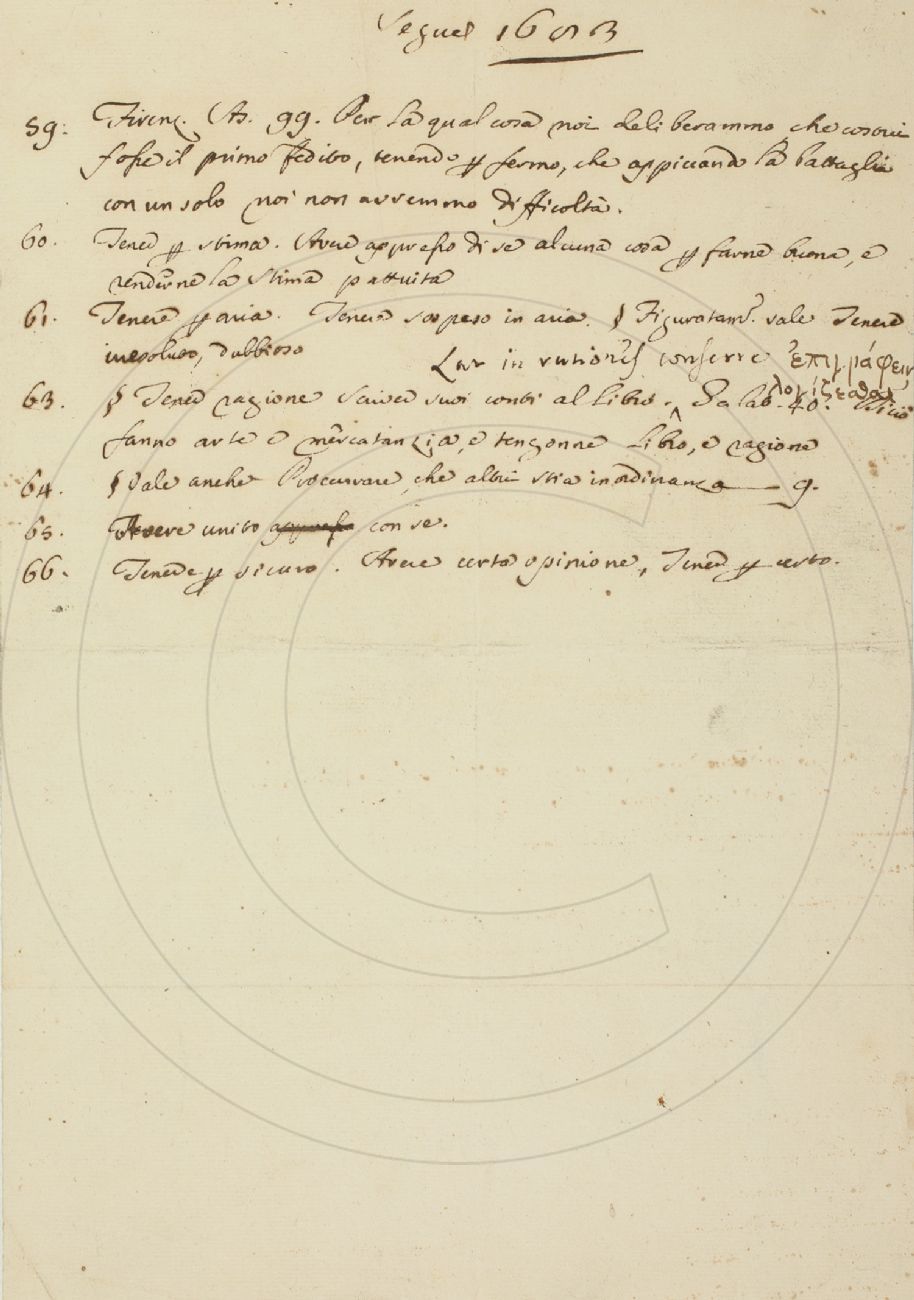 Segue 1683
59. Firenz. As. 99. Per la qual cosa noi deliberammo, che costui
fosse il primo fedito, tenendo p fermo, che appiccando la battaglia
con un solo noi non avremmo difficoltà.
60. Tener p stima. Avere appresso di se alcuna cosa p farne buona, e
renderne la stima pattuita
61. Tenere p aria. Tenere sospeso in aria. § Figuratam. vale Tenere
irresoluto, dubbioso
Lat in rationes conferre ἐπιγράφειν
λογίζεσθαι
63. § Tener ragione Scriver suoi conti al Libro. Galat. 40.
fanno arte e mercatanzia, e tengonne Libro, e ragione
64. § Vale anche Procurare, che altri stia in ordinanza — 9.
65. Avere unito appresso con se.
66. Tenere p sicuro. Avere certa opinione, Tener p certo.